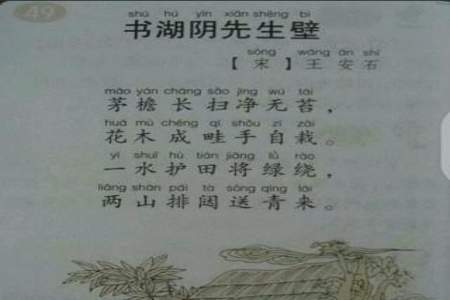 49
shū hú yīn xiān shēng bì
书湖阴先生壁
sòng wáng ān shí
【宋】王安石
máo yán cháng sǎo jìng wú tái
茅檐长扫净无苔，
huā mù chéng qí shǒu zì zāi
花木成畦手自栽。
yī shuǐ hù tián jiāng lǜ rào
一水护田将绿绕，
liǎng shān pái tà sòng qīng lái
两山排闼送青来。